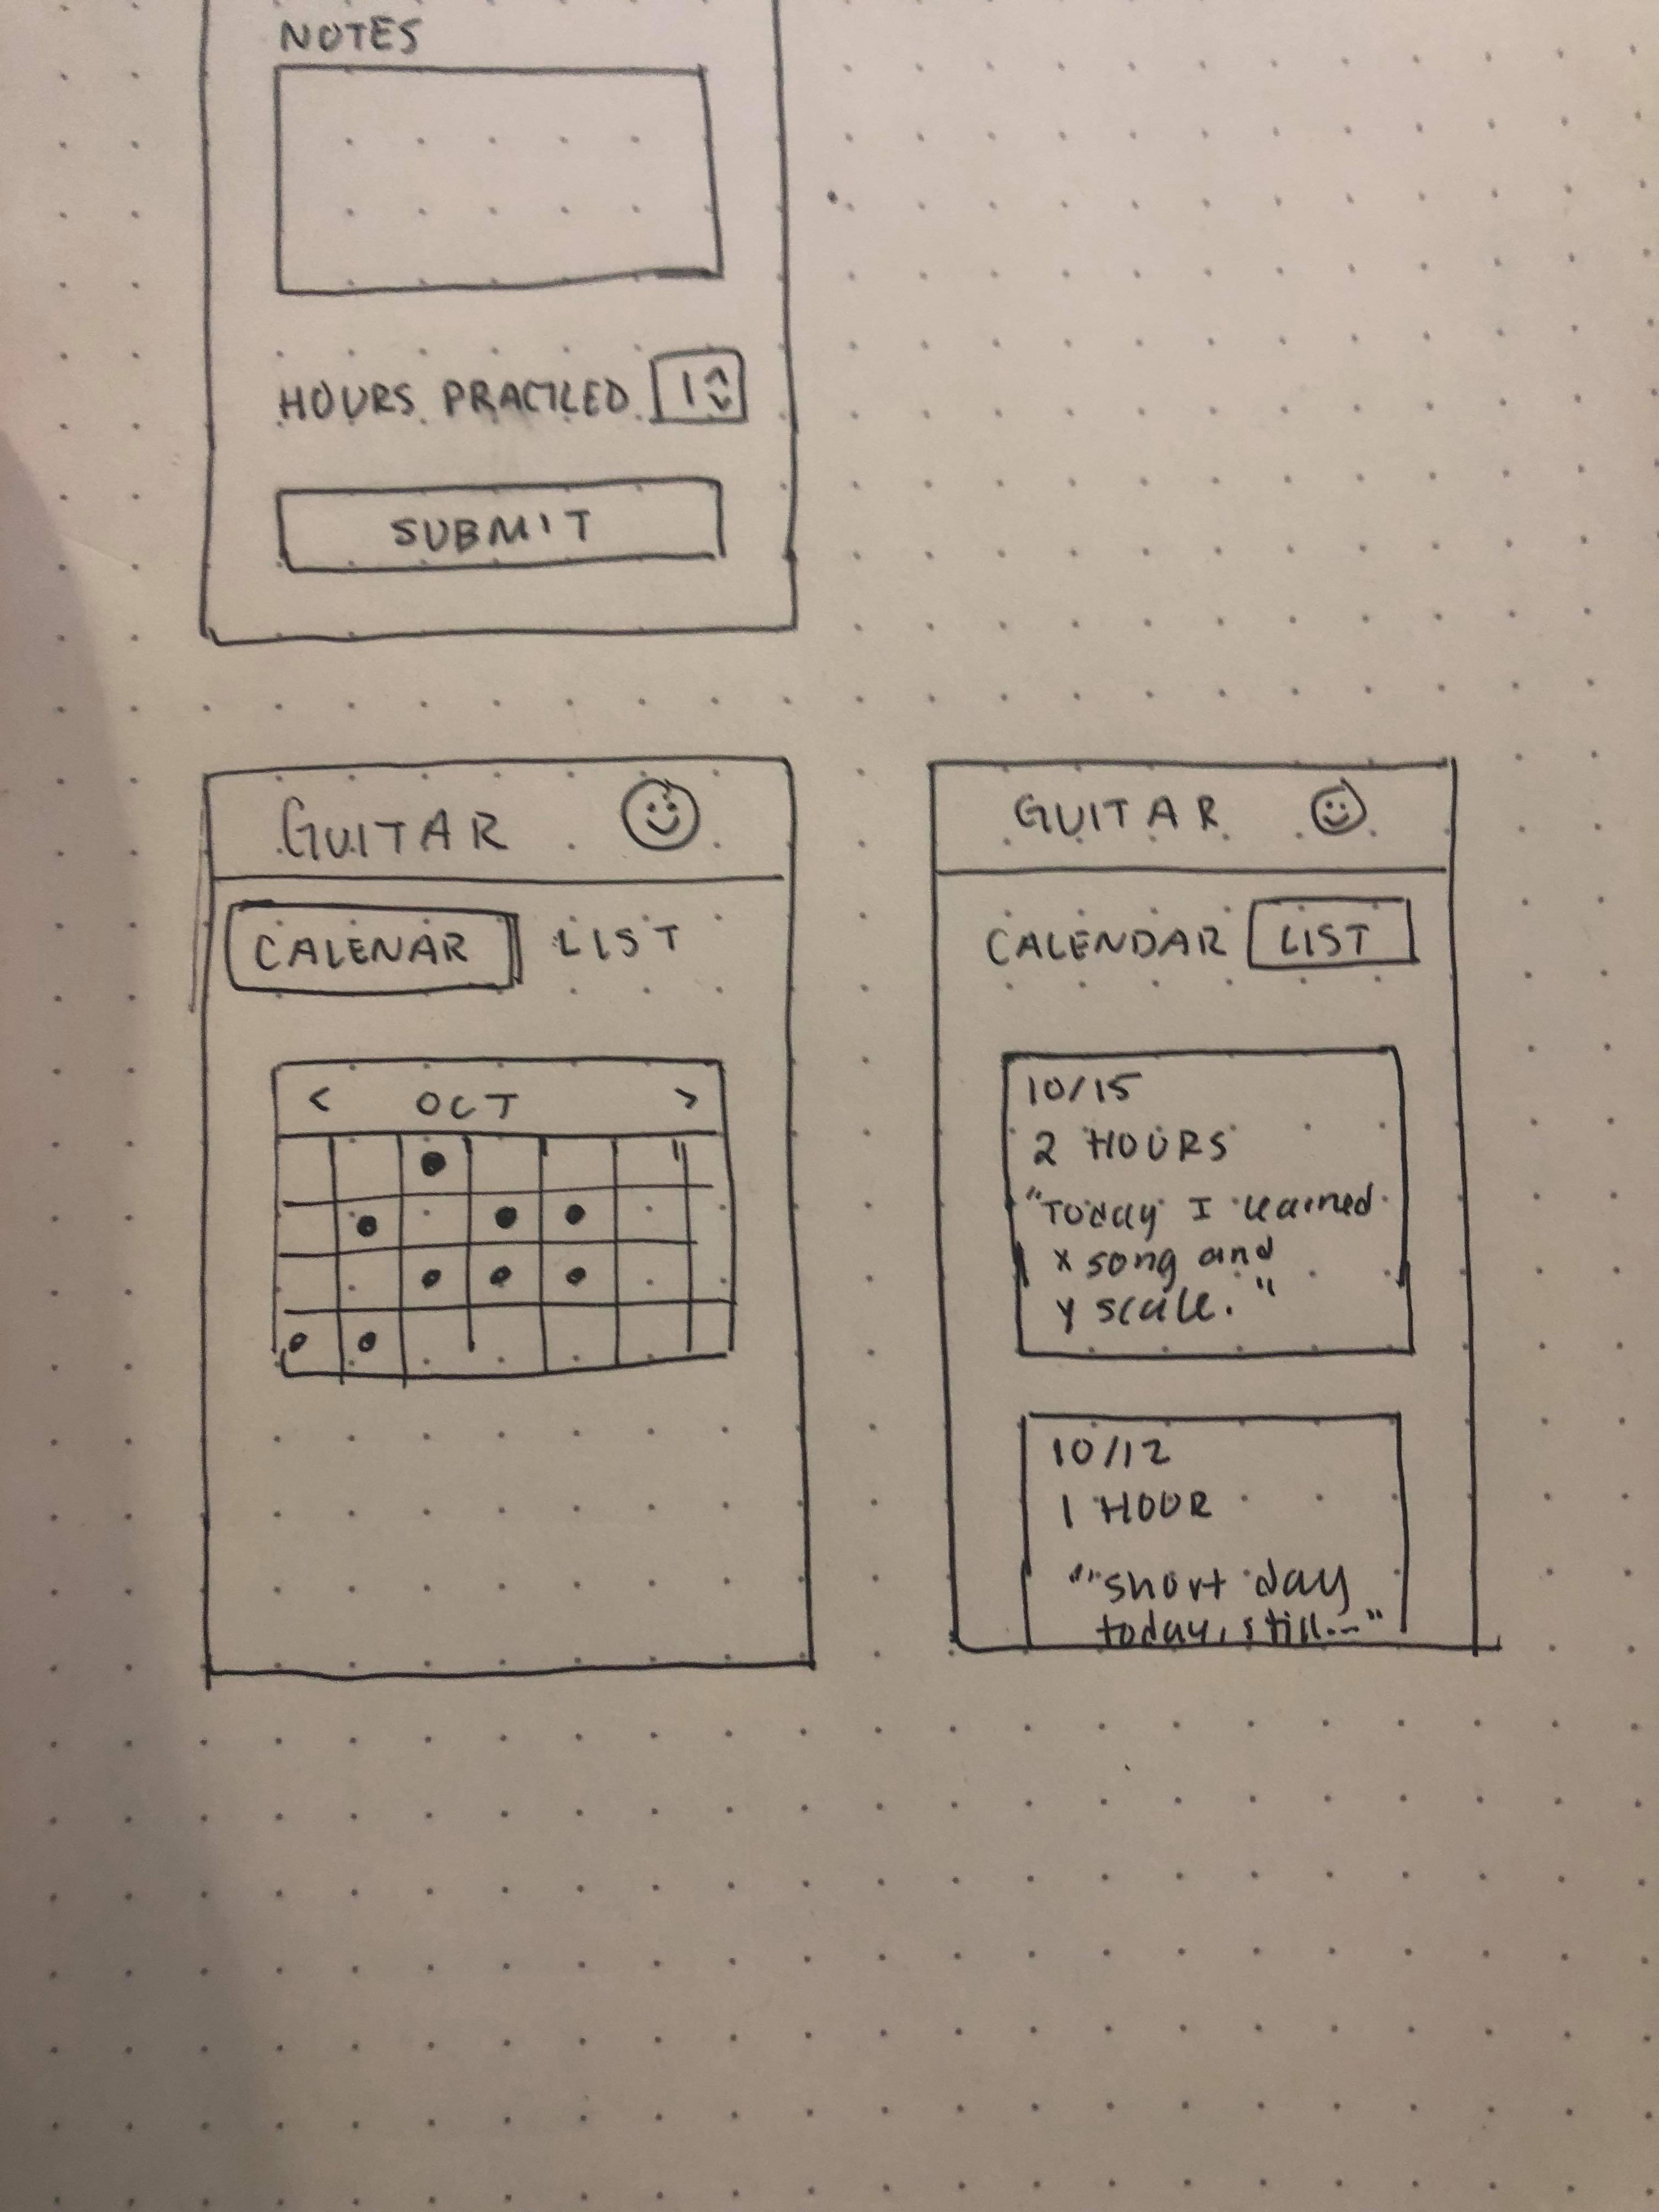 NOTES
HOURS PRACTICED 1
SUBMIT
GUITAR
CALENAR LIST
< OCT >
GUITAR
CALENDAR LIST
10/15
2 HOURS
"Today I learned
x song and
y scale."
10/12
1 HOUR
"short day
today, still..."